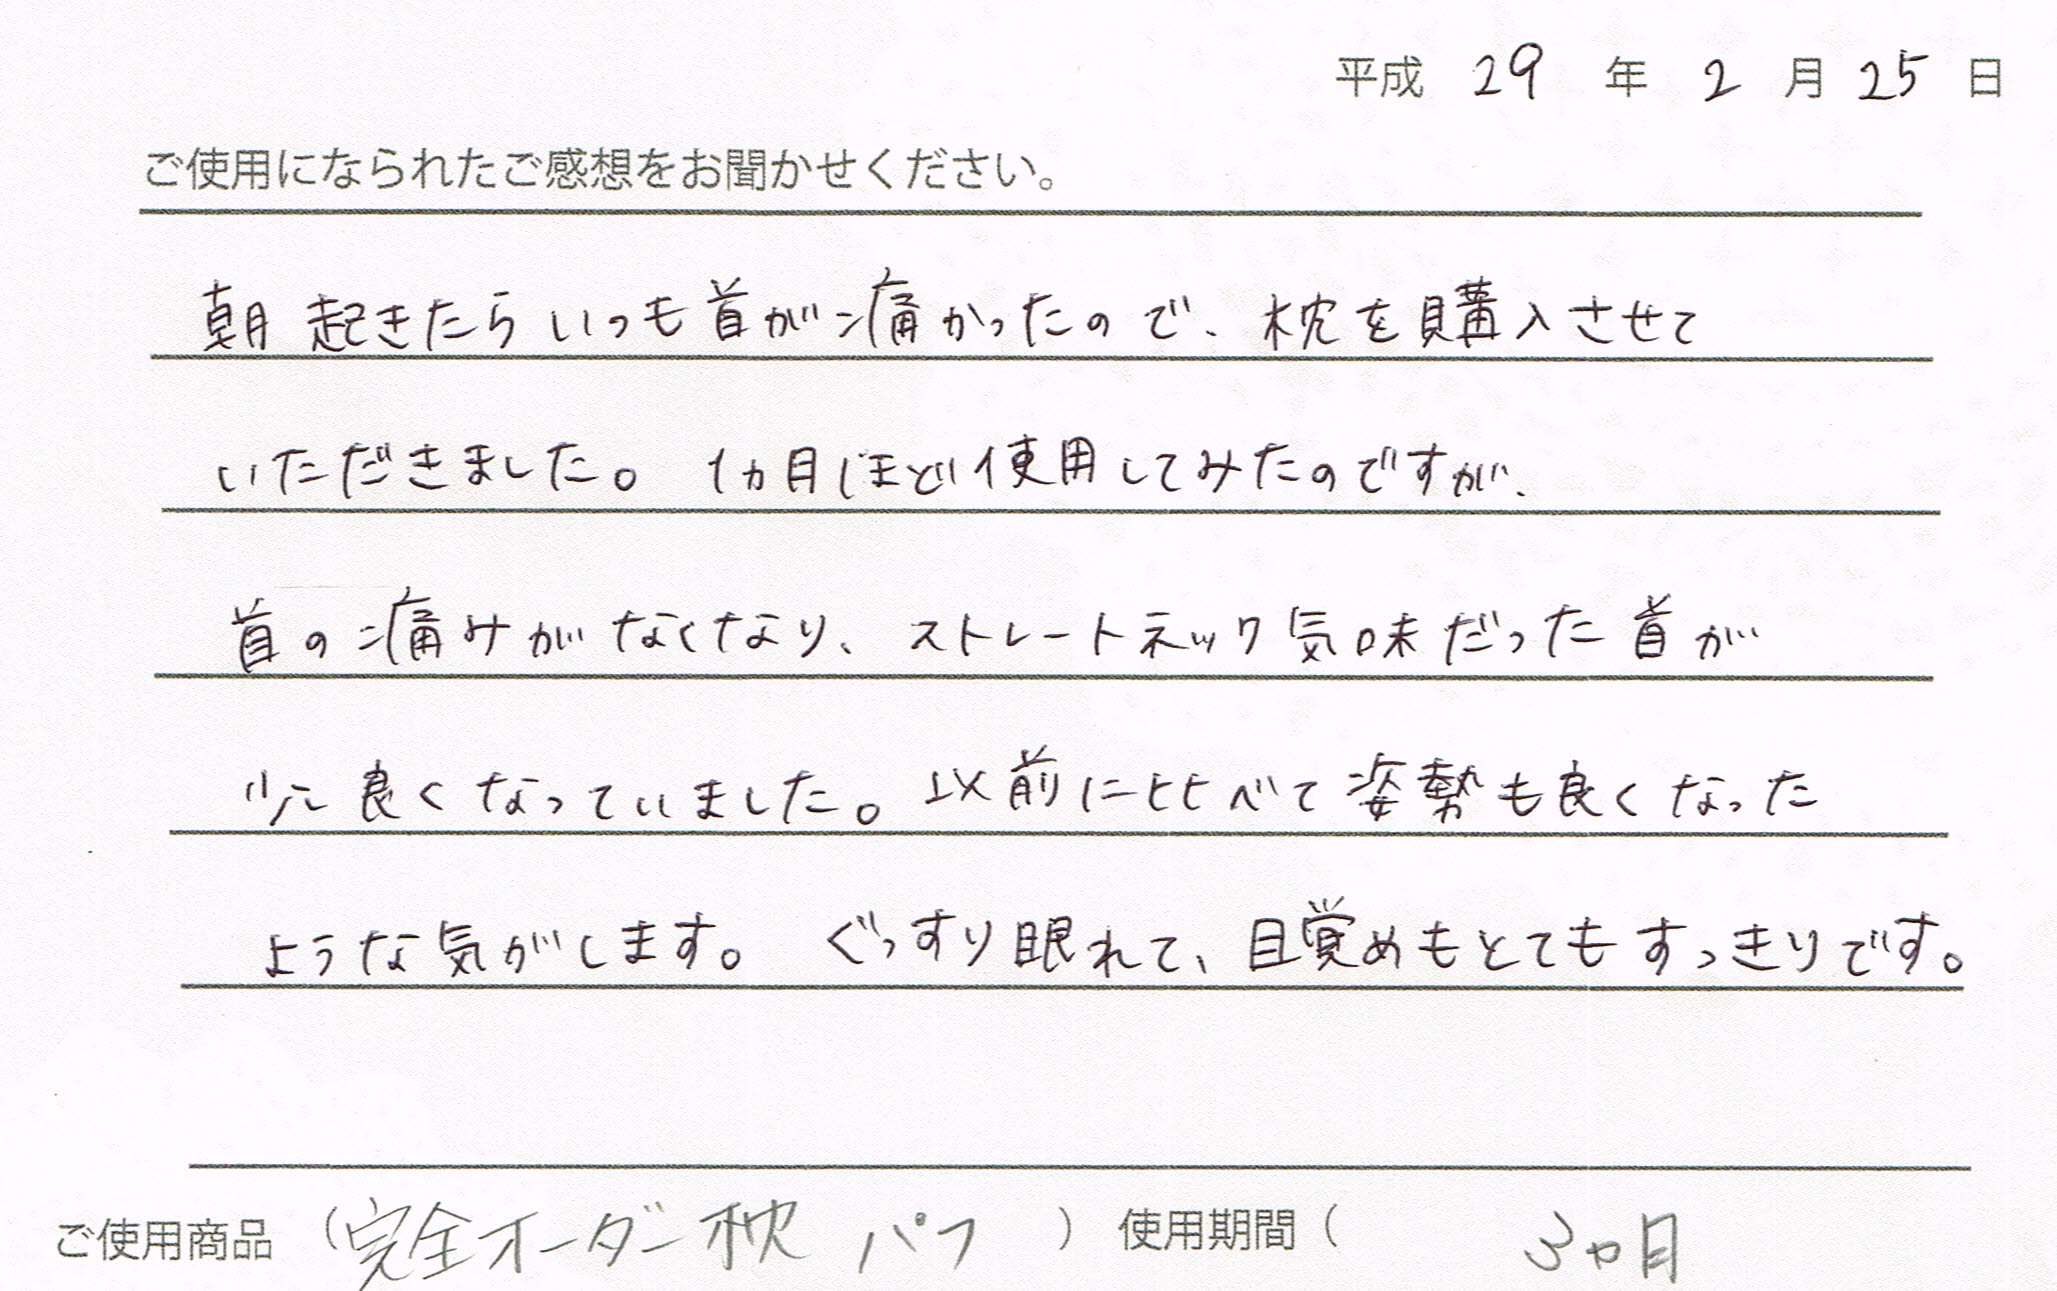 平成 29 年 2 月 25 日
ご使用になられたご感想をお聞かせください。
朝起きたらいつも首が痛かったので、枕を購入させて
いただきました。1ヵ月ほど使用してみたのですが、
首の痛みがなくなり、ストレートネック気味だった首が
少し良くなっていました。以前に比べて姿勢も良くなった
ような気がします。ぐっすり眠れて、目覚めもとてもすっきりです。
ご使用商品（完全オーダー枕 パフ）使用期間（3ヵ月